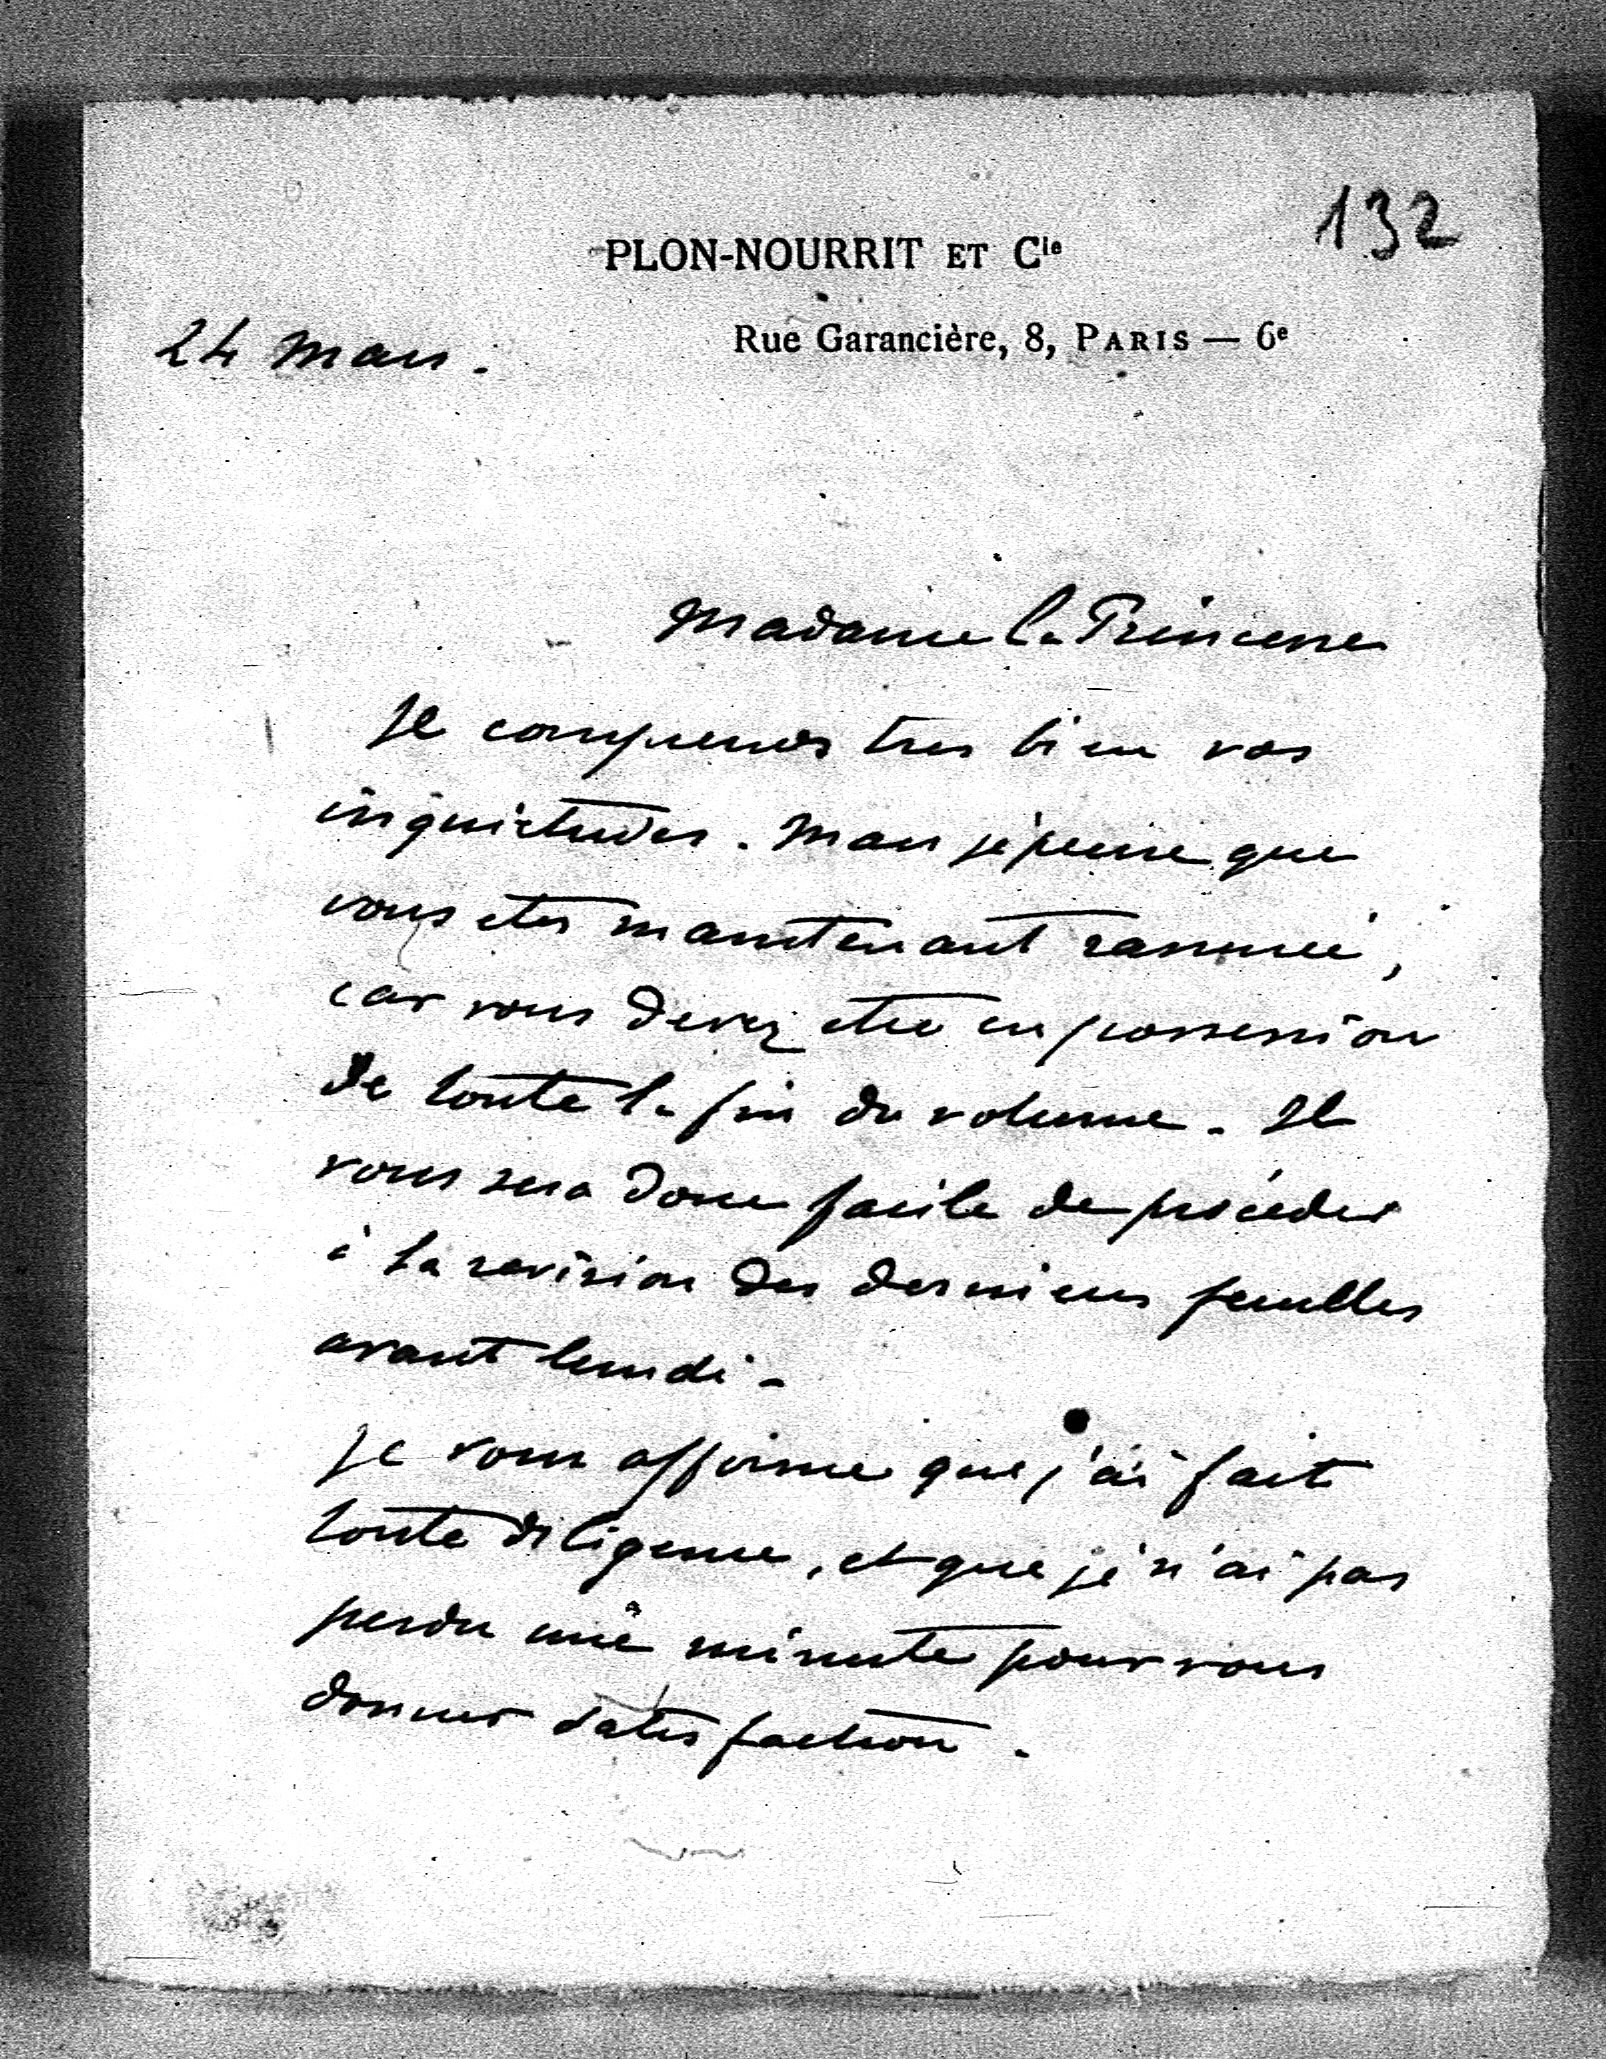 132
PLON-NOURRIT ET Cie
Rue Garancière, 8, PARIS — 6e
24 Mars.
Madame la Princesse
Je comprends tres bien vos
inquietudes. Mais je pense que
vous etes maintenant rassurée,
car vous devez etre en possession
de toute la fin du volume. Il
vous sera donc facile de procéder
à la revision des dernieres feuilles
avant lundi.
Je vous affirme que j'ai fait
toute diligence, et que je n'ai pas
perdu une minute pour vous
donner satisfaction.